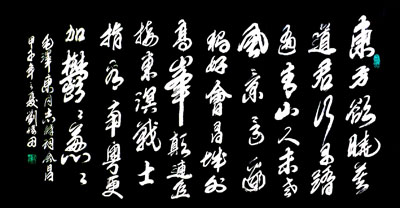 東方欲曉莫
道君行早踏
遍青山人未老
風景這邊
獨好會昌城外
高峯顛連直
接東溟戰士
指看南粵更
加鬱々葱々
毛澤東同志詞會昌
甲午年之夏劉